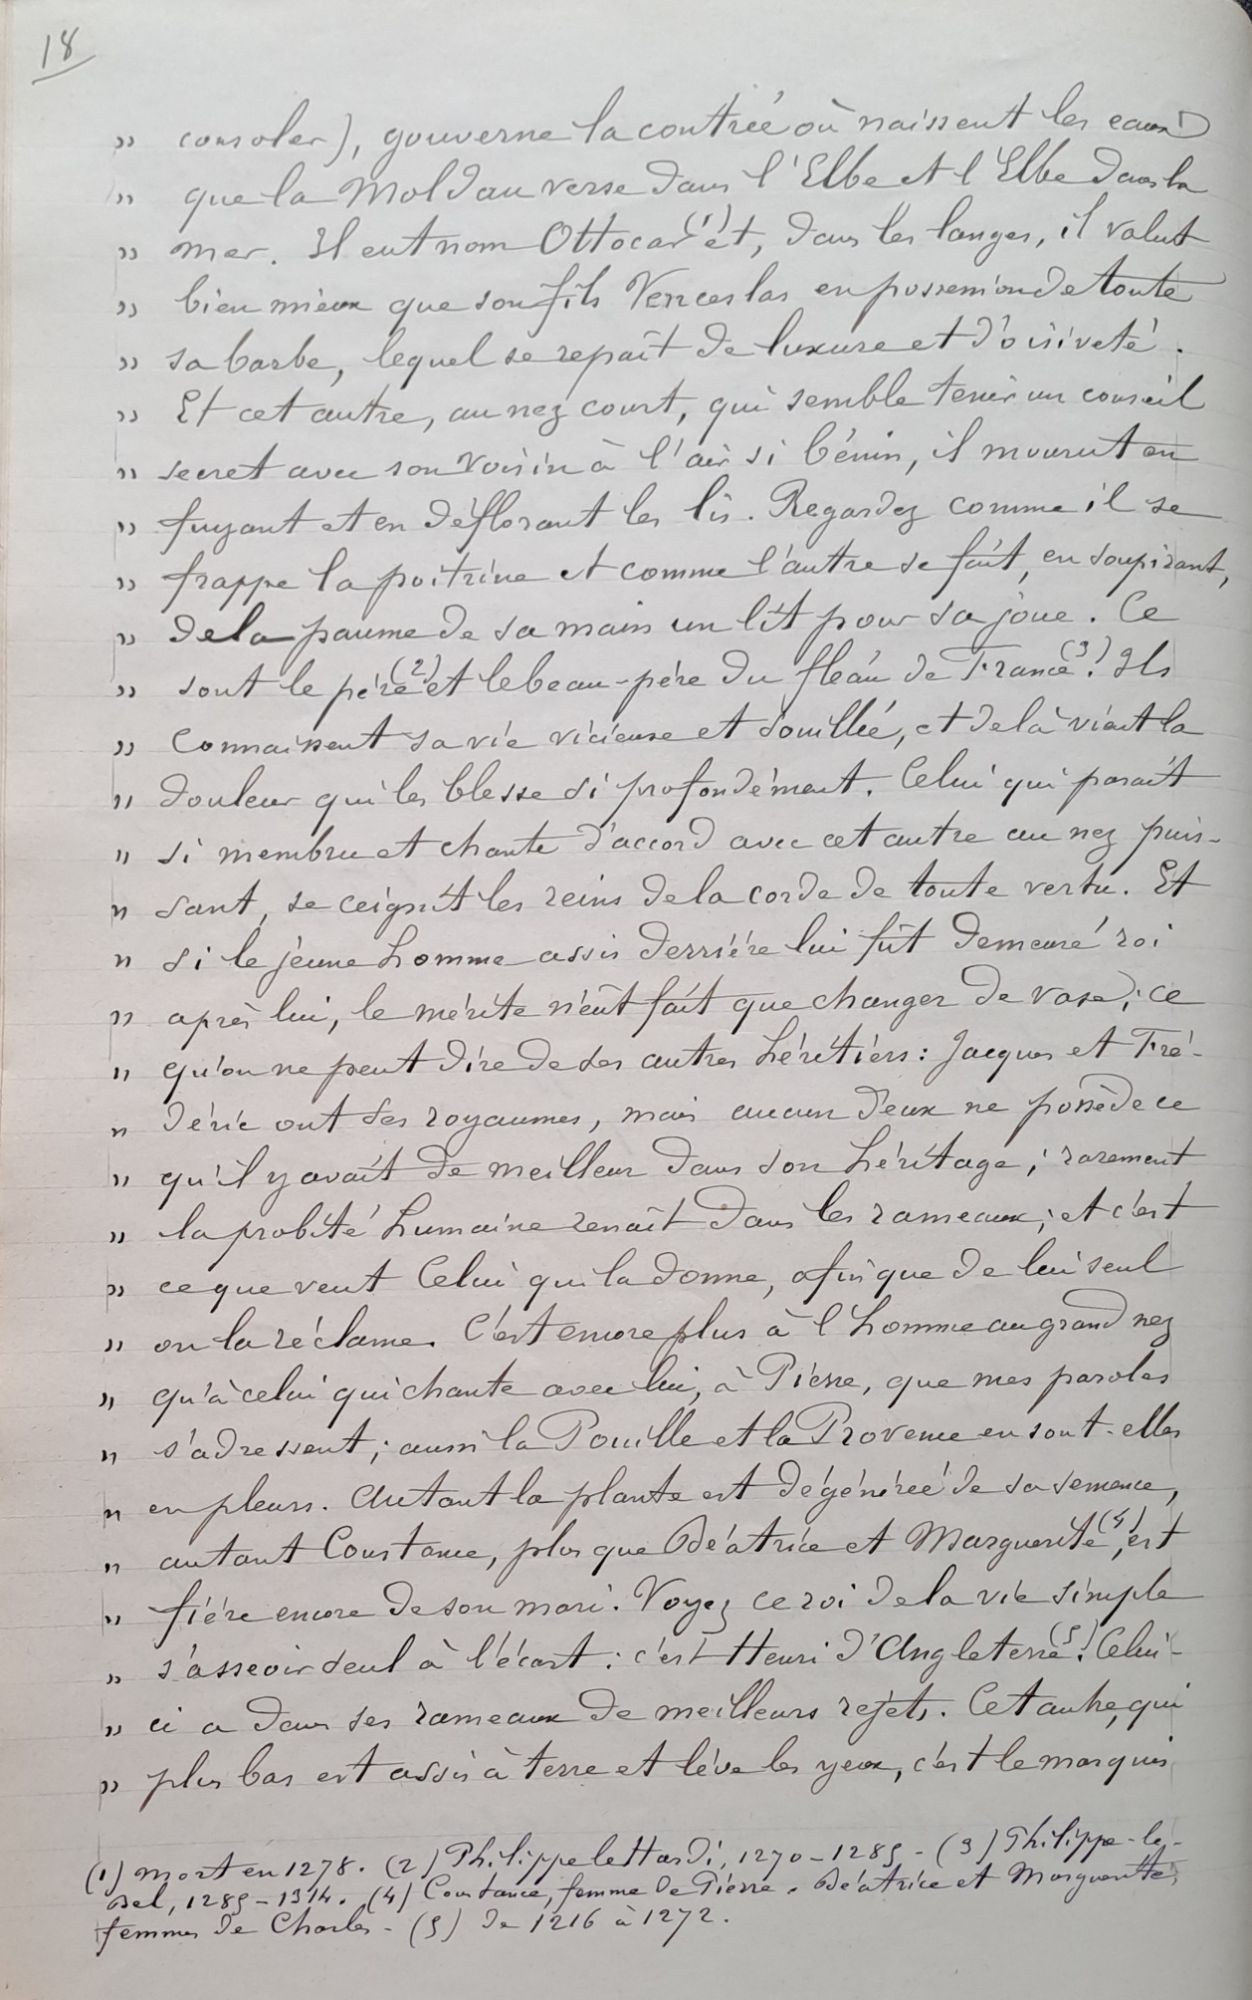 18
" consoler), gouverne la contrée où naissent les eaux
" que la Moldau verse dans l'Elbe et l'Elbe dans la
" mer. Il eut nom Ottocar (1) et, dans les langes, il valut
" bien mieux que son fils Venceslas en possession de toute
" sa barbe, lequel se repaît de luxure et d'oisiveté.
" Et cet autre, au nez court, qui semble tenir un conseil
" secret avec son voisin à l'air si bénin, il mourut en
" fuyant et en déflorant les lis. Regardez comme il se
" frappe la poitrine et comme l'autre se fait, en soupirant,
" de la paume de sa main un lit pour sa joue. Ce
" sont le père (2) et le beau-père du fléau de France (3). Ils
" connaissent sa vie vicieuse et souillée, et de là vient la
" douleur qui les blesse si profondément. Celui qui paraît
" si membru et chante d'accord avec cet autre au nez puis-
" sant, se ceignit les reins de la corde de toute vertu. Et
" si le jeune homme assis derrière lui fût demeuré roi
" après lui, le mérite n'eût fait que changer de vase; ce
" qu'on ne peut dire de ses autres héritiers: Jacques et Fré-
" déric ont ses royaumes, mais aucun d'eux ne possède ce
" qu'il y avait de meilleur dans son héritage; rarement
" la probité humaine renaît dans les rameaux; et c'est
" ce que veut Celui qui la donne, afin que de lui seul
" on la réclame. C'est encore plus à l'homme au grand nez
" qu'à celui qui chante avec lui, à Pierre, que mes paroles
" s'adressent; aussi la Pouille et la Provence en sont-elles
" en pleurs. Autant la plante est dégénérée de sa semence,
" autant Constance, plus que Béatrice et Marguerite (4), est
" fière encore de son mari. Voyez ce roi de la vie simple
" s'asseoir seul à l'écart: c'est Henri d'Angleterre (5). Celui-
" ci a dans ses rameaux de meilleurs rejets. Cet autre, qui
" plus bas est assis à terre et lève les yeux, c'est le marquis
(1) mort en 1278. (2) Philippe le Hardi, 1270-1285 - (3) Philippe-le-
Bel, 1285-1314. (4) Constance, femme de Pierre. Béatrice et Marguerite,
femmes de Charles - (5) de 1216 à 1272.